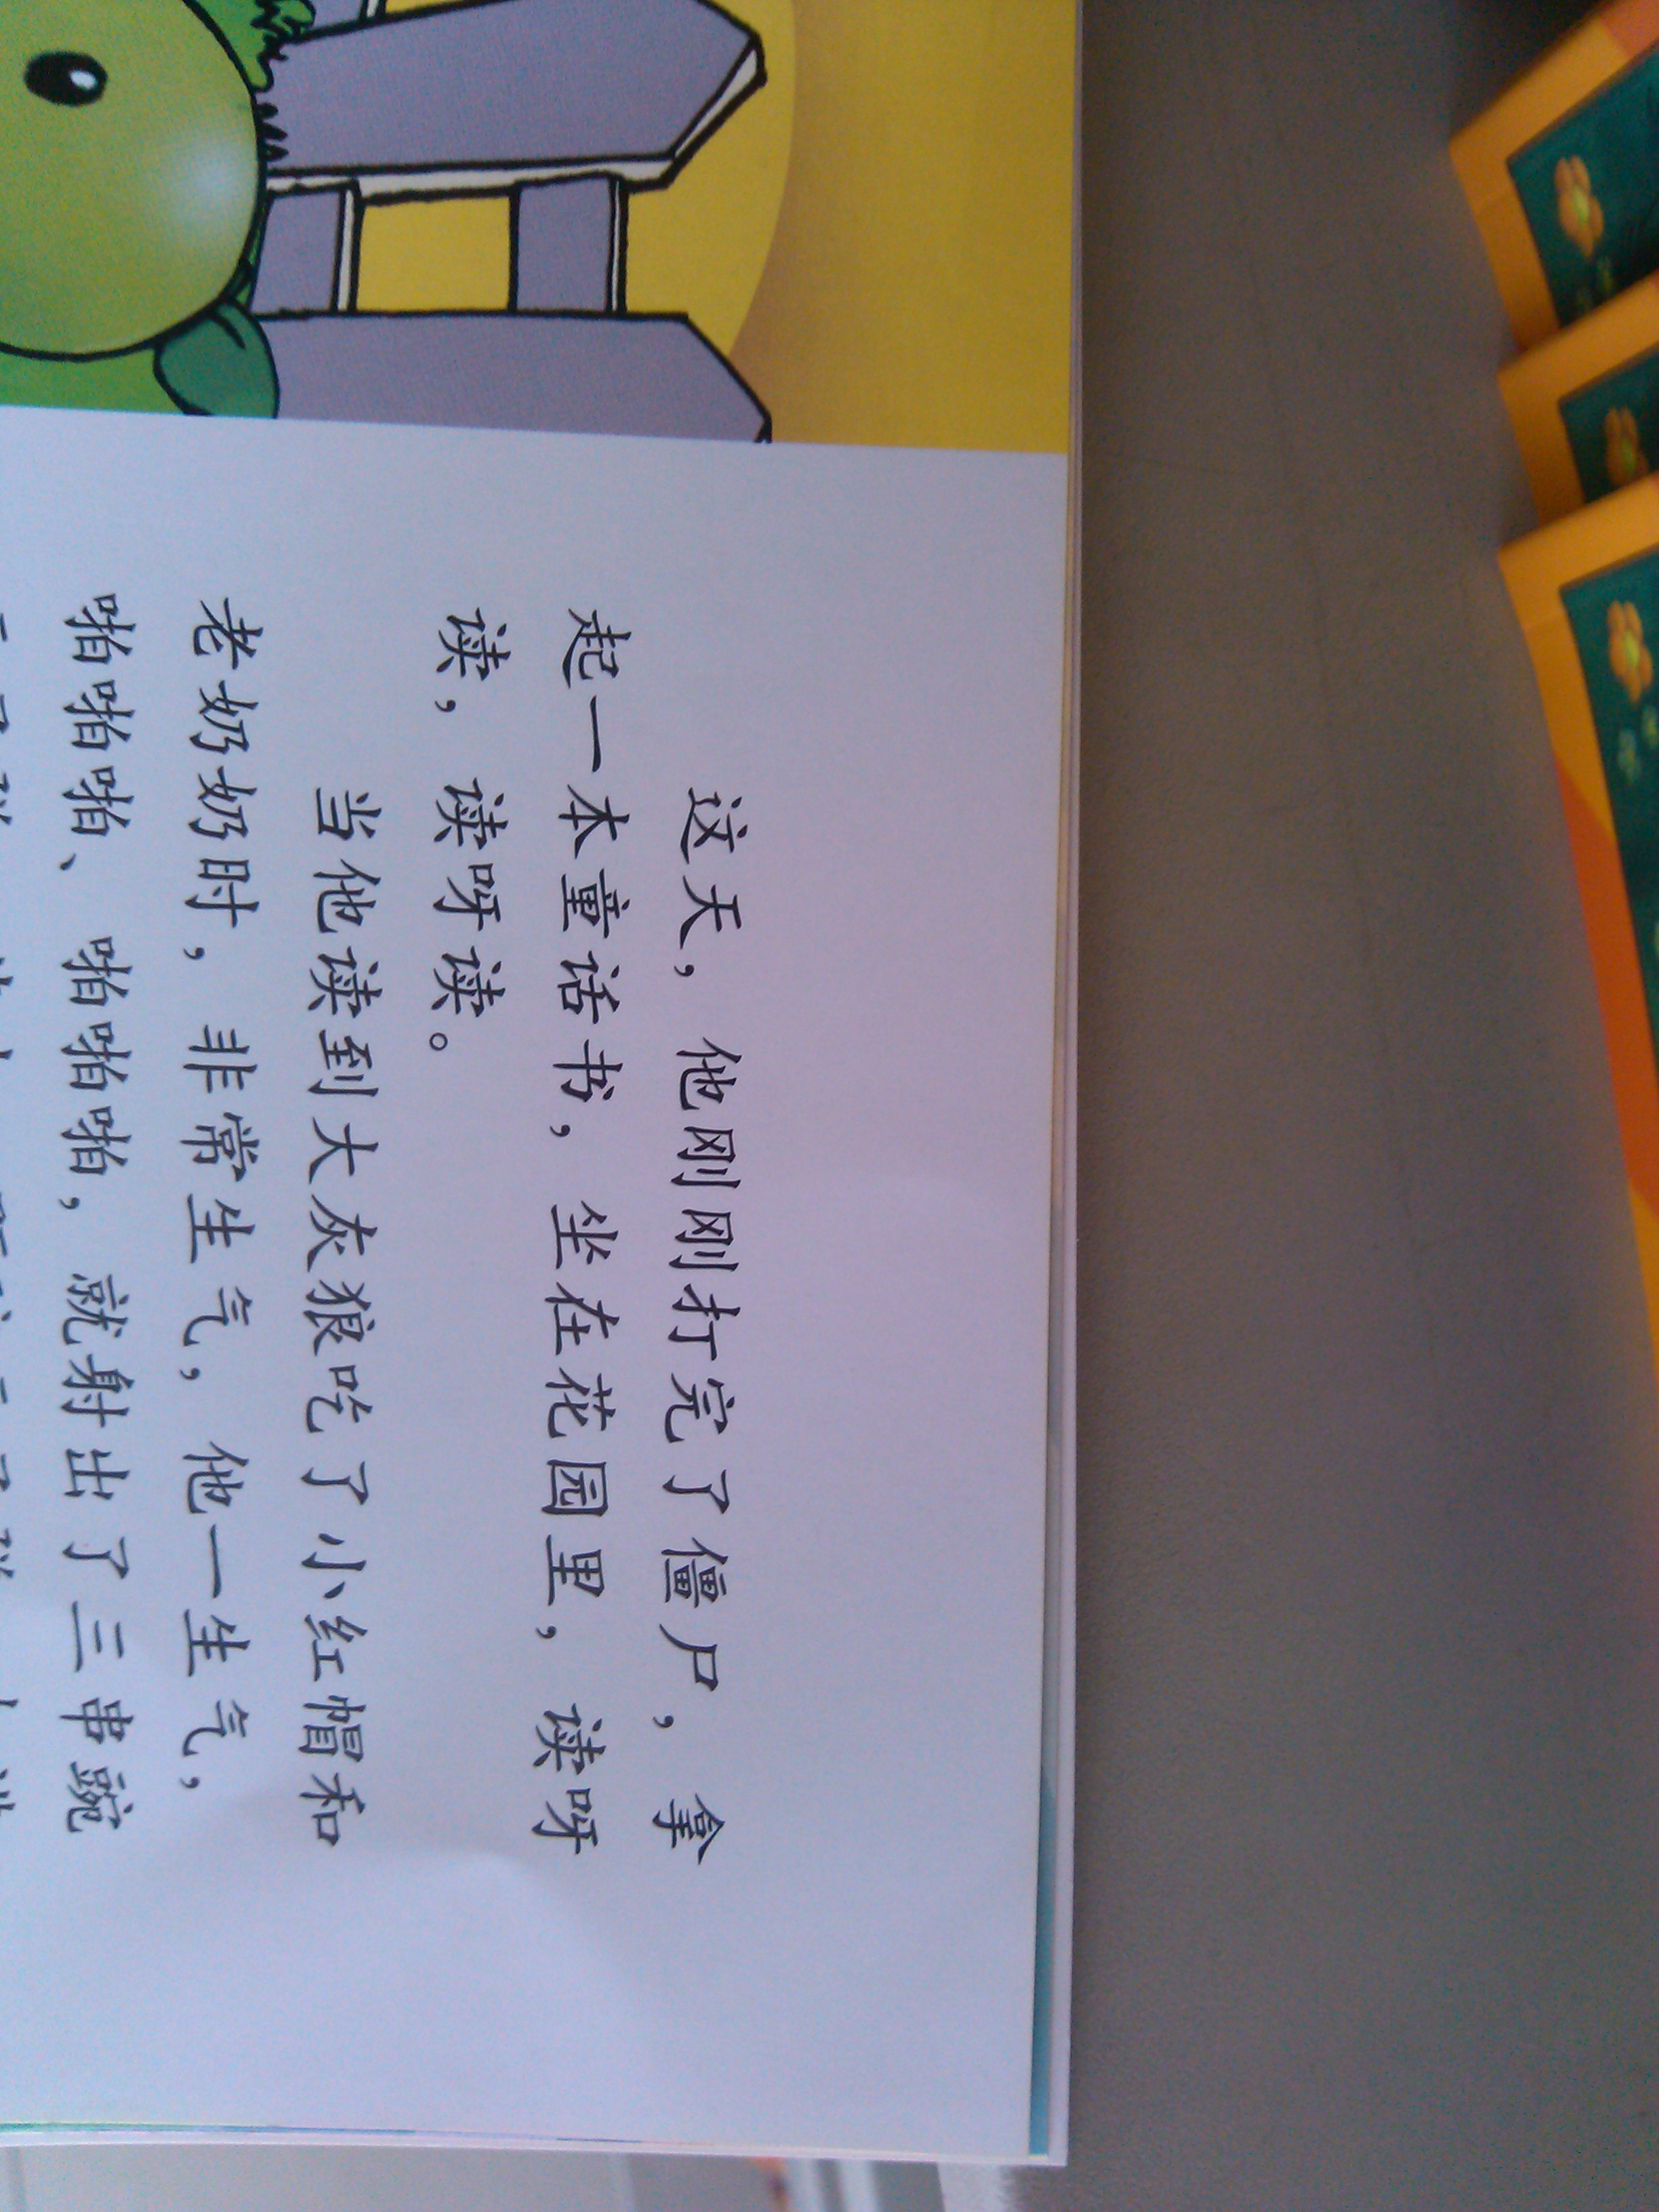 这天，他刚刚打完了僵尸，拿
起一本童话书，坐在花园里，读呀
读，读呀读。
当他读到大灰狼吃了小红帽和
老奶奶时，非常生气，他一生气，
啪啪啪、啪啪啪，就射出了三串豌